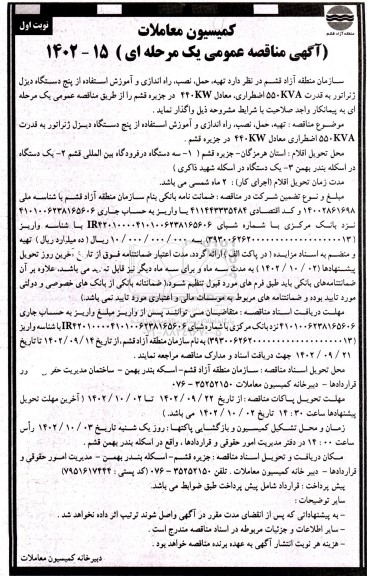 نوبت اول
منطقه آزاد قشم
کمیسیون معاملات
(آگهی مناقصه عمومی یک مرحله ای ) ۱۵ - ۱۴۰۲
سازمان منطقه آزاد قشم در نظر دارد تهیه، حمل، نصب، راه اندازی و آموزش استفاده از پنج دستگاه دیزل
ژنراتور به قدرت ۵۵۰KVA اضطراری، معادل ۴۴۰KW در جزیره قشم را از طریق مناقصه عمومی یک مرحله
ای به پیمانکار واجد صلاحیت با شرایط مشروحه ذیل واگذار نماید .
موضوع مناقصه : تهیه، حمل، نصب، راه اندازی و آموزش استفاده از پنج دستگاه دیزل ژنراتور به قدرت
۵۵۰KVA اضطراری معادل ۴۴۰KW در جزیره قشم .
محل تحویل اقلام : استان هرمزگان- جزیره قشم ( ۱- سه دستگاه درفرودگاه بین المللی قشم ۲- یک دستگاه
در اسکله بندر بهمن ۳- یک دستگاه در اسکله شهید ذاکری )
مدت زمان تحویل اقلام (اجرای کار) : ۲ ماه شمسی می باشد.
مبلغ و نوع تضمین شرکت در مناقصه : ضمانت نامه بانکی بنام سازمان منطقه آزاد قشم با شناسه ملی
۱۴۰۰۲۸۶۱۶۹۸ و کد اقتصادی ۴۱۱۴۴۳۳۳۵۴۸۴ یا واریز به حساب جاری ۴۱۰۱۰۰۶۲۳۸۱۶۵۶۰۶
نزد بانک مرکزی با شماره شبای IR۴۲۰۱۰۰۰۰۴۱۰۱۰۰۶۲۳۸۱۶۵۶۰۶ با شناسه واریز
به ۱۰/۰۰۰/۰۰۰/۰۰۰ ریال ( ده میلیارد ریال ) تهیه
و منضم به اسناد مزایده ( در پاکت الف ) ارائه گردد. مدت اعتبار ضمانتنامه فوق از آخرین روز تحویل
پیشنهادها (۱۴۰۲/۱۰/۰۲ ) به مدت سه ماه و برای سه ماه دیگر نیز قابل می باشد. علاوه بر آن
ضمانتنامه‌های بانکی باید طبق فرم های مورد قبول تنظیم شود.( ضمانتنامه بانکی از بانک های خصوصی و دولتی
مورد تایید بوده و ضمانتنامه های مربوط به موسسات مالی و اعتباری مورد تایید نمی باشد.)
مهلت دریافت اسناد مناقصه : متقاضیان می توانند پس از واریز مبلغ واریز به حساب جاری
۴۱۰۱۰۰۶۲۳۸۱۶۵۶۰۶ نزد بانک مرکزی با شماره شبای IR۴۲۰۱۰۰۰۰۴۱۰۱۰۰۶۲۳۸۱۶۵۶۰۶ با شناسه واریز
به نام سازمان منطقه آزاد قشم، از تاریخ ۱۴۰۲/۰۹/۱۴ تا تاریخ
۱۴۰۲/۰۹/۲۱ جهت دریافت اسناد و مدارک مناقصه مراجعه نمایند .
محل تحویل اسناد مناقصه : سازمان منطقه آزاد قشم- اسکله بندر بهمن - ساختمان مدیریت
قراردادها - دبیرخانه کمیسیون معاملات ۳۵۲۵۲۱۵۰ - ۰۷۶
مهلت تحویل پاکات مناقصه : از تاریخ ۱۴۰۲/۰۹/۲۲ تا ۱۴۰۲/۱۰/۰۲ ( آخرین مهلت تحویل
پیشنهادها ساعت ۱۴:۳۰ تاریخ ۱۴۰۲/۱۰/۰۲ می باشد .)
زمان و محل تشکیل کمیسیون و بازگشایی پاکتها : روز یک شنبه تاریخ ۱۴۰۲/۱۰/۰۳ رأس
ساعت ۱۴:۰۰ در دفتر مدیریت امور حقوقی و قراردادها ، واقع در اسکله بندر بهمن قشم .
مکان دریافت و تحویل اسناد مناقصه : جزیره قشم- اسکله بندر بهمن - مدیریت امور حقوقی و
قراردادها - دبیرخانه کمیسیون معاملات . تلفن ۳۵۲۵۲۱۵۰ - ۰۷۶ (کد پستی : ۷۹۵۱۶۱۷۴۴۴)
پیش پرداخت : قرارداد شامل پیش پرداخت طبق ضوابط می باشد.
سایر توضیحات :
- به پیشنهاداتی که پس از انقضای مدت مقرر در آگهی واصل شوند ترتیب اثر داده نخواهد شد .
- سایر اطلاعات و جزئیات مربوطه در اسناد مناقصه مندرج است .
- هزینه هر نوبت انتشار آگهی به عهده برنده مناقصه خواهد بود .
دبیرخانه کمیسیون معاملات